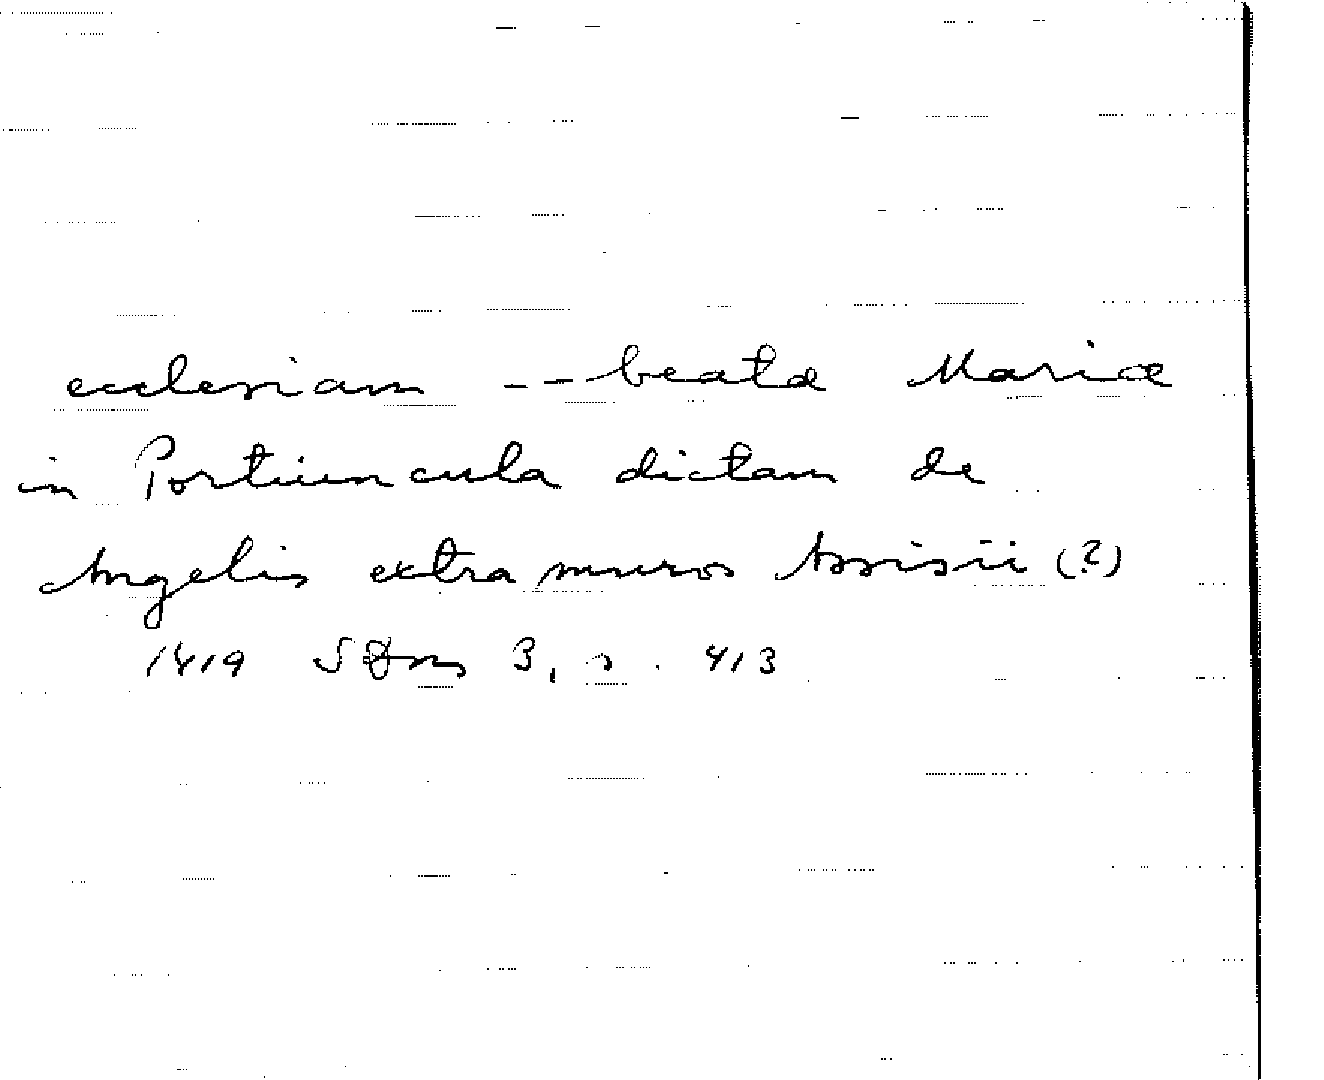 ecclesiam -- beatæ Mariæ
in Portiuncula dictam de
Angelis extra muros Assisii (?)
1419 3, s. 413